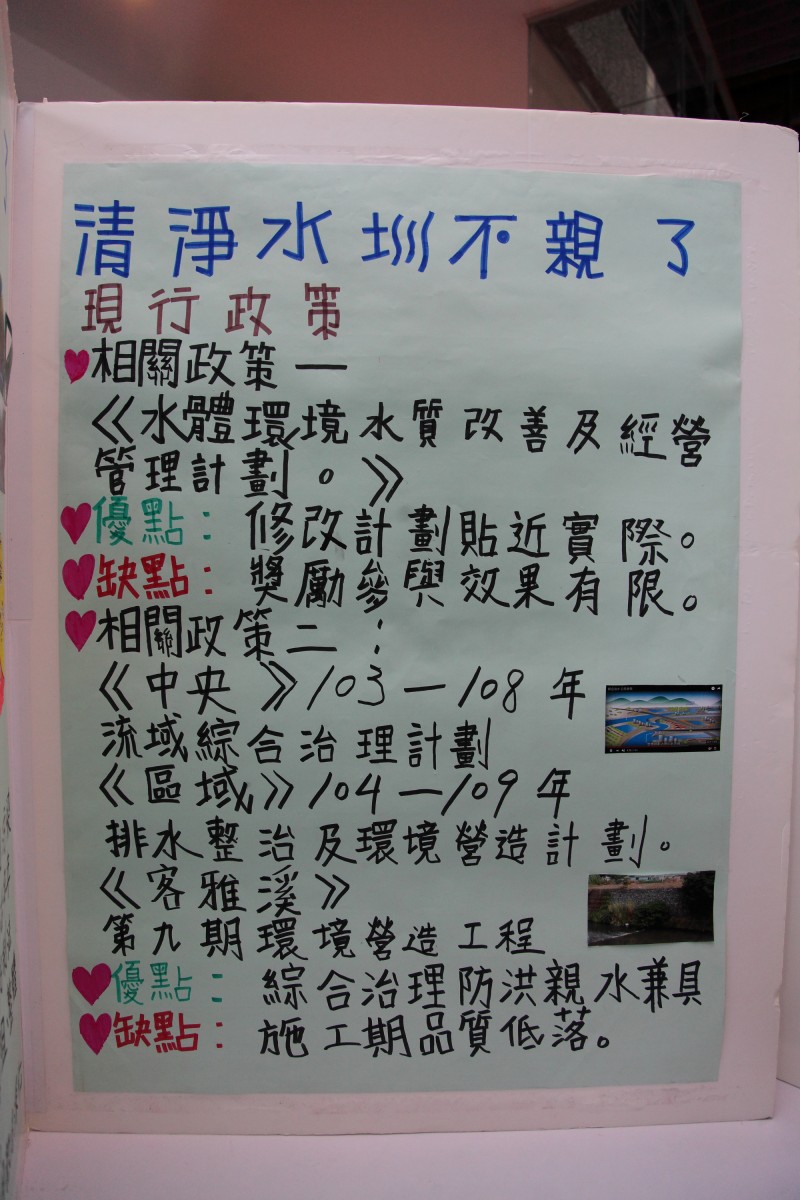 清淨水圳不親了
現行政策
相關政策一
《水體環境水質改善及經營
管理計劃。》
優點：修改計劃貼近實際。
缺點：獎勵參與效果有限。
相關政策二：
《中央》103－108年
流域綜合治理計劃
《區域》104－109年
排水整治及環境營造計劃。
《客雅溪》
第九期環境營造工程
優點：綜合治理防洪親水兼具
缺點：施工期品質低落。